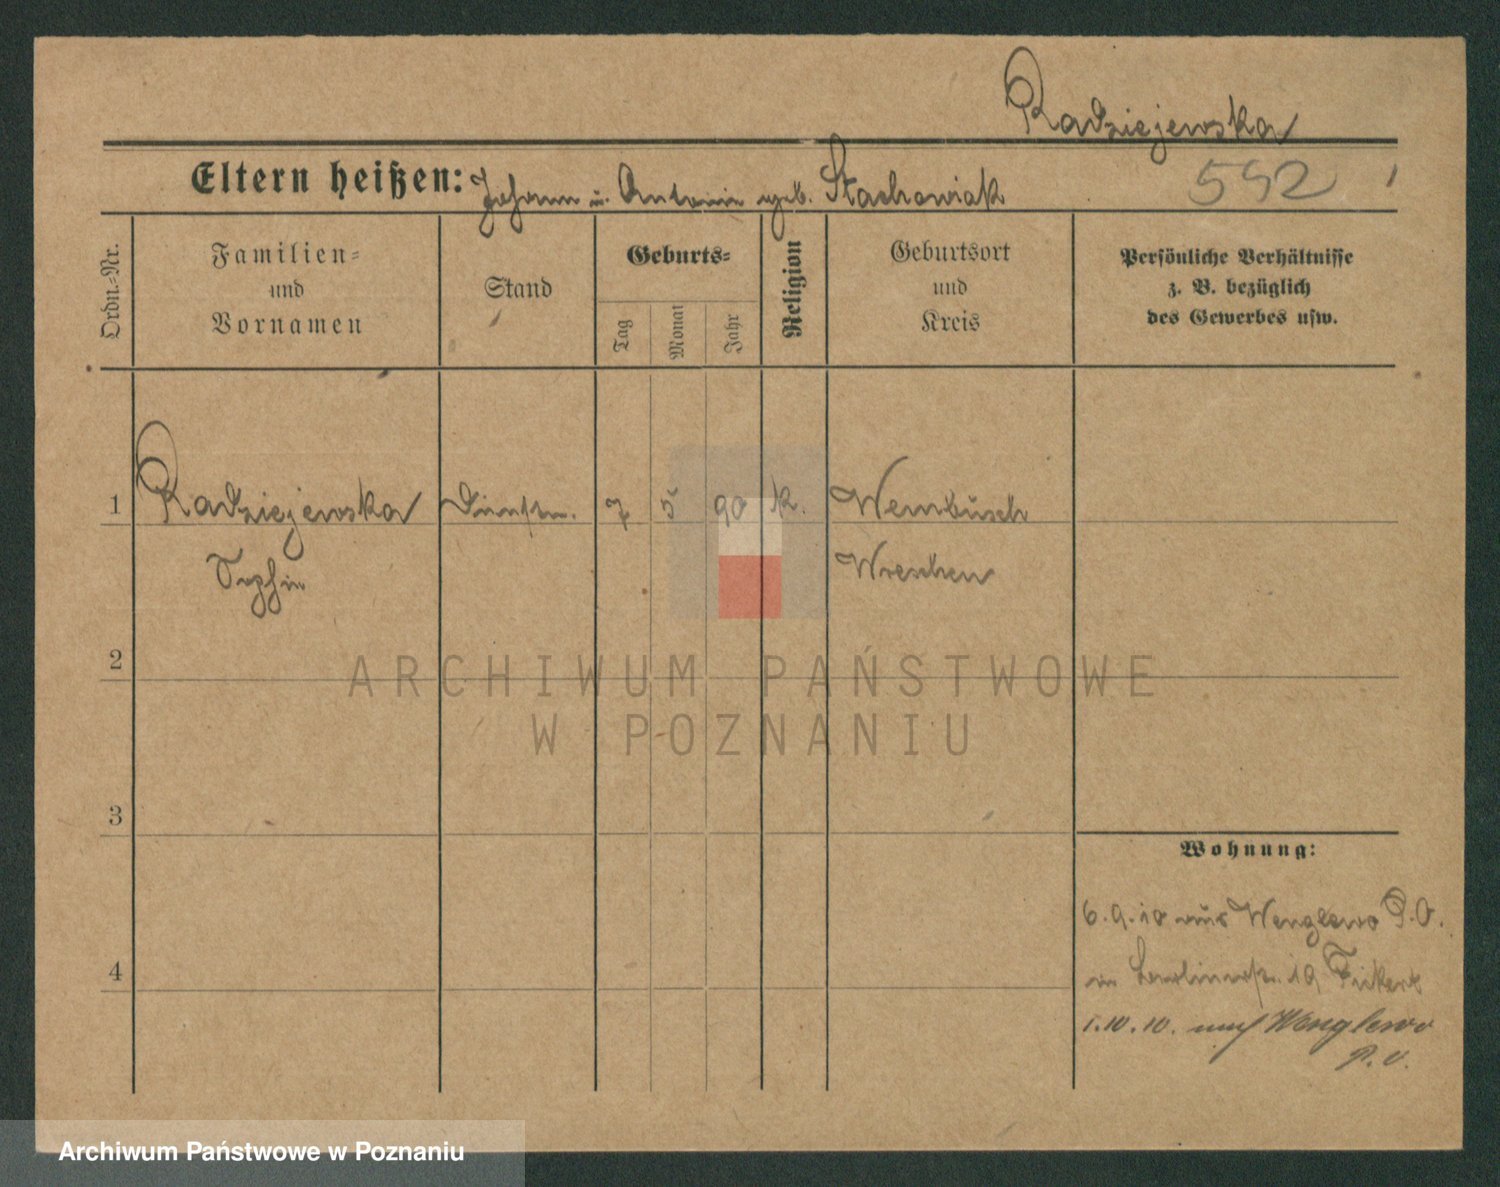 Radziejewska
Eltern heißen: Johann u. Antonin geb. Stachowiak
592
Ordn.-Nr.
Familien-
und
Vornamen
Stand
Geburts-
Tag
Monat
Jahr
Religion
Geburtsort
und
Kreis
Persönliche Verhältnisse
z. B. bezüglich
des Gewerbes usw.
1 Radziejewska 7 5 90 k. Wembusch
Sophie Wreschen
2
3
4
Wohnung:
6.9.10 aus Wenglewo P.O.
in Berlinerstr. 19
1.10.10. nach Wenglewo
P.O.
ARCHIWUM PAŃSTWOWE
W POZNANIU
Archiwum Państwowe w Poznaniu